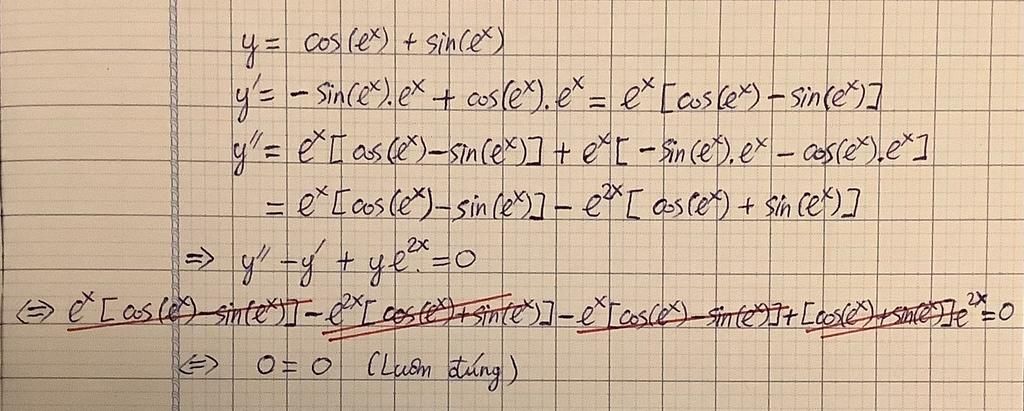 y = cos(eˣ) + sin(eˣ)
y' = - sin(eˣ).eˣ + cos(eˣ).eˣ = eˣ [cos(eˣ) - sin(eˣ)]
y'' = eˣ [cos(eˣ) - sin(eˣ)] + eˣ [ - sin(eˣ).eˣ - cos(eˣ).eˣ]
= eˣ [cos(eˣ) - sin(eˣ)] - e²ˣ [cos(eˣ) + sin(eˣ)]
=> y'' - y' + y e²ˣ. = 0
<=> eˣ [cos(eˣ) - sin(eˣ)] - e²ˣ [cos(eˣ) + sin(eˣ)] - eˣ [cos(eˣ) - sin(eˣ)] + [cos(eˣ) + sin(eˣ)] e²ˣ = 0
<=> 0 = 0 (Luôn đúng)